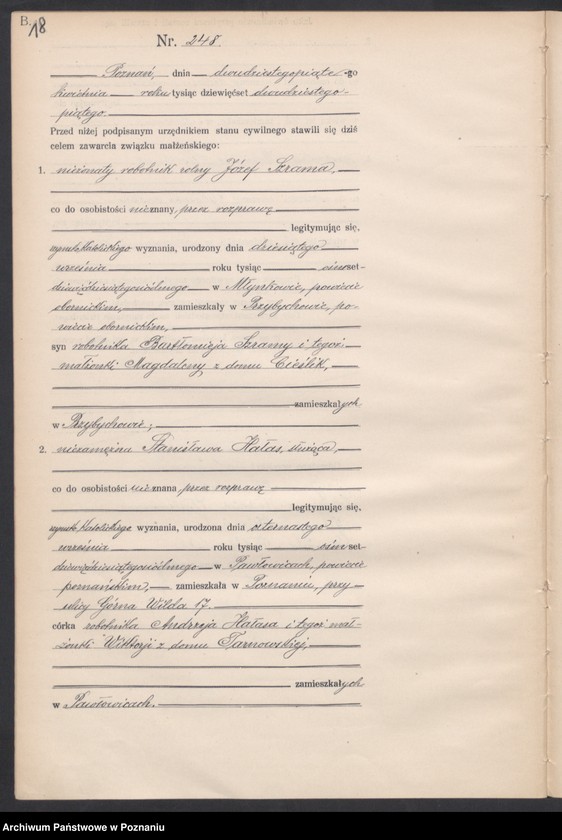 B.
18
Nr. 248.
Poznań, dnia dwudziestegopiąte-go
kwietnia roku tysiąc dziewięćset dwudziestego-
piątego.
Przed niżej podpisanym urzędnikiem stanu cywilnego stawili się dziś
celem zawarcia związku małżeńskiego:
1. nieżonaty robotnik rolny Józef Szrama,
co do osobistości nieznany, przez rozprawę
legitymując się,
rzymsko katolickiego wyznania, urodzony dnia dziesiątego
września roku tysiąc ośmset-
dziewięćdziesiątegoósmego w Młynkowie, powiecie
obornickim, zamieszkały w Przybychowie, po-
wiecie obornickim,
syn robotnika Bartłomieja Szramy i tegoż
małżonki Magdaleny z domu Cieślik,
zamieszkałych
w Przybychowie;
2. niezamężna Stanisława Hałas, służąca,
co do osobistości nieznana przez rozprawę
legitymując się,
rzymsko katolickiego wyznania, urodzona dnia czternastego
września roku tysiąc ośmset-
dziewięćdziesiątegoósmego w Pawłowicach, powiecie
poznańskim, zamieszkała w Poznaniu, przy
ulicy Górna Wilda 17.
córka robotnika Andrzeja Hałasa i tegoż mał-
żonki Wiktorji z domu Tarnowskiej,
zamieszkałych
w Pawłowicach.
Archiwum Państwowe w Poznaniu